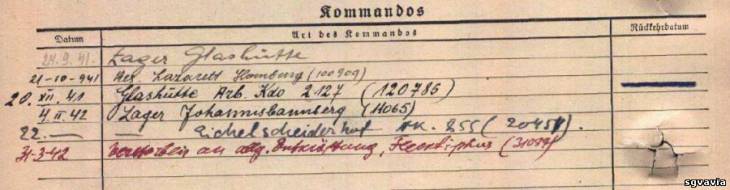 Kommandos
Datum Art des Kommandos Rückkehrdatum
24.9.41. Lager Glashütte
21-10-941 Res. Lazarett Homberg (100909)
20.XII.41 Glashütte Arb. Kdo 2127 (120785)
4.II.42 Lager Johannisbannberg (4065)
22. — — Eichelscheiderhof AK. 255 (2045).
31-3-42 verstorben an allg. Entkräftung,
sgvavia